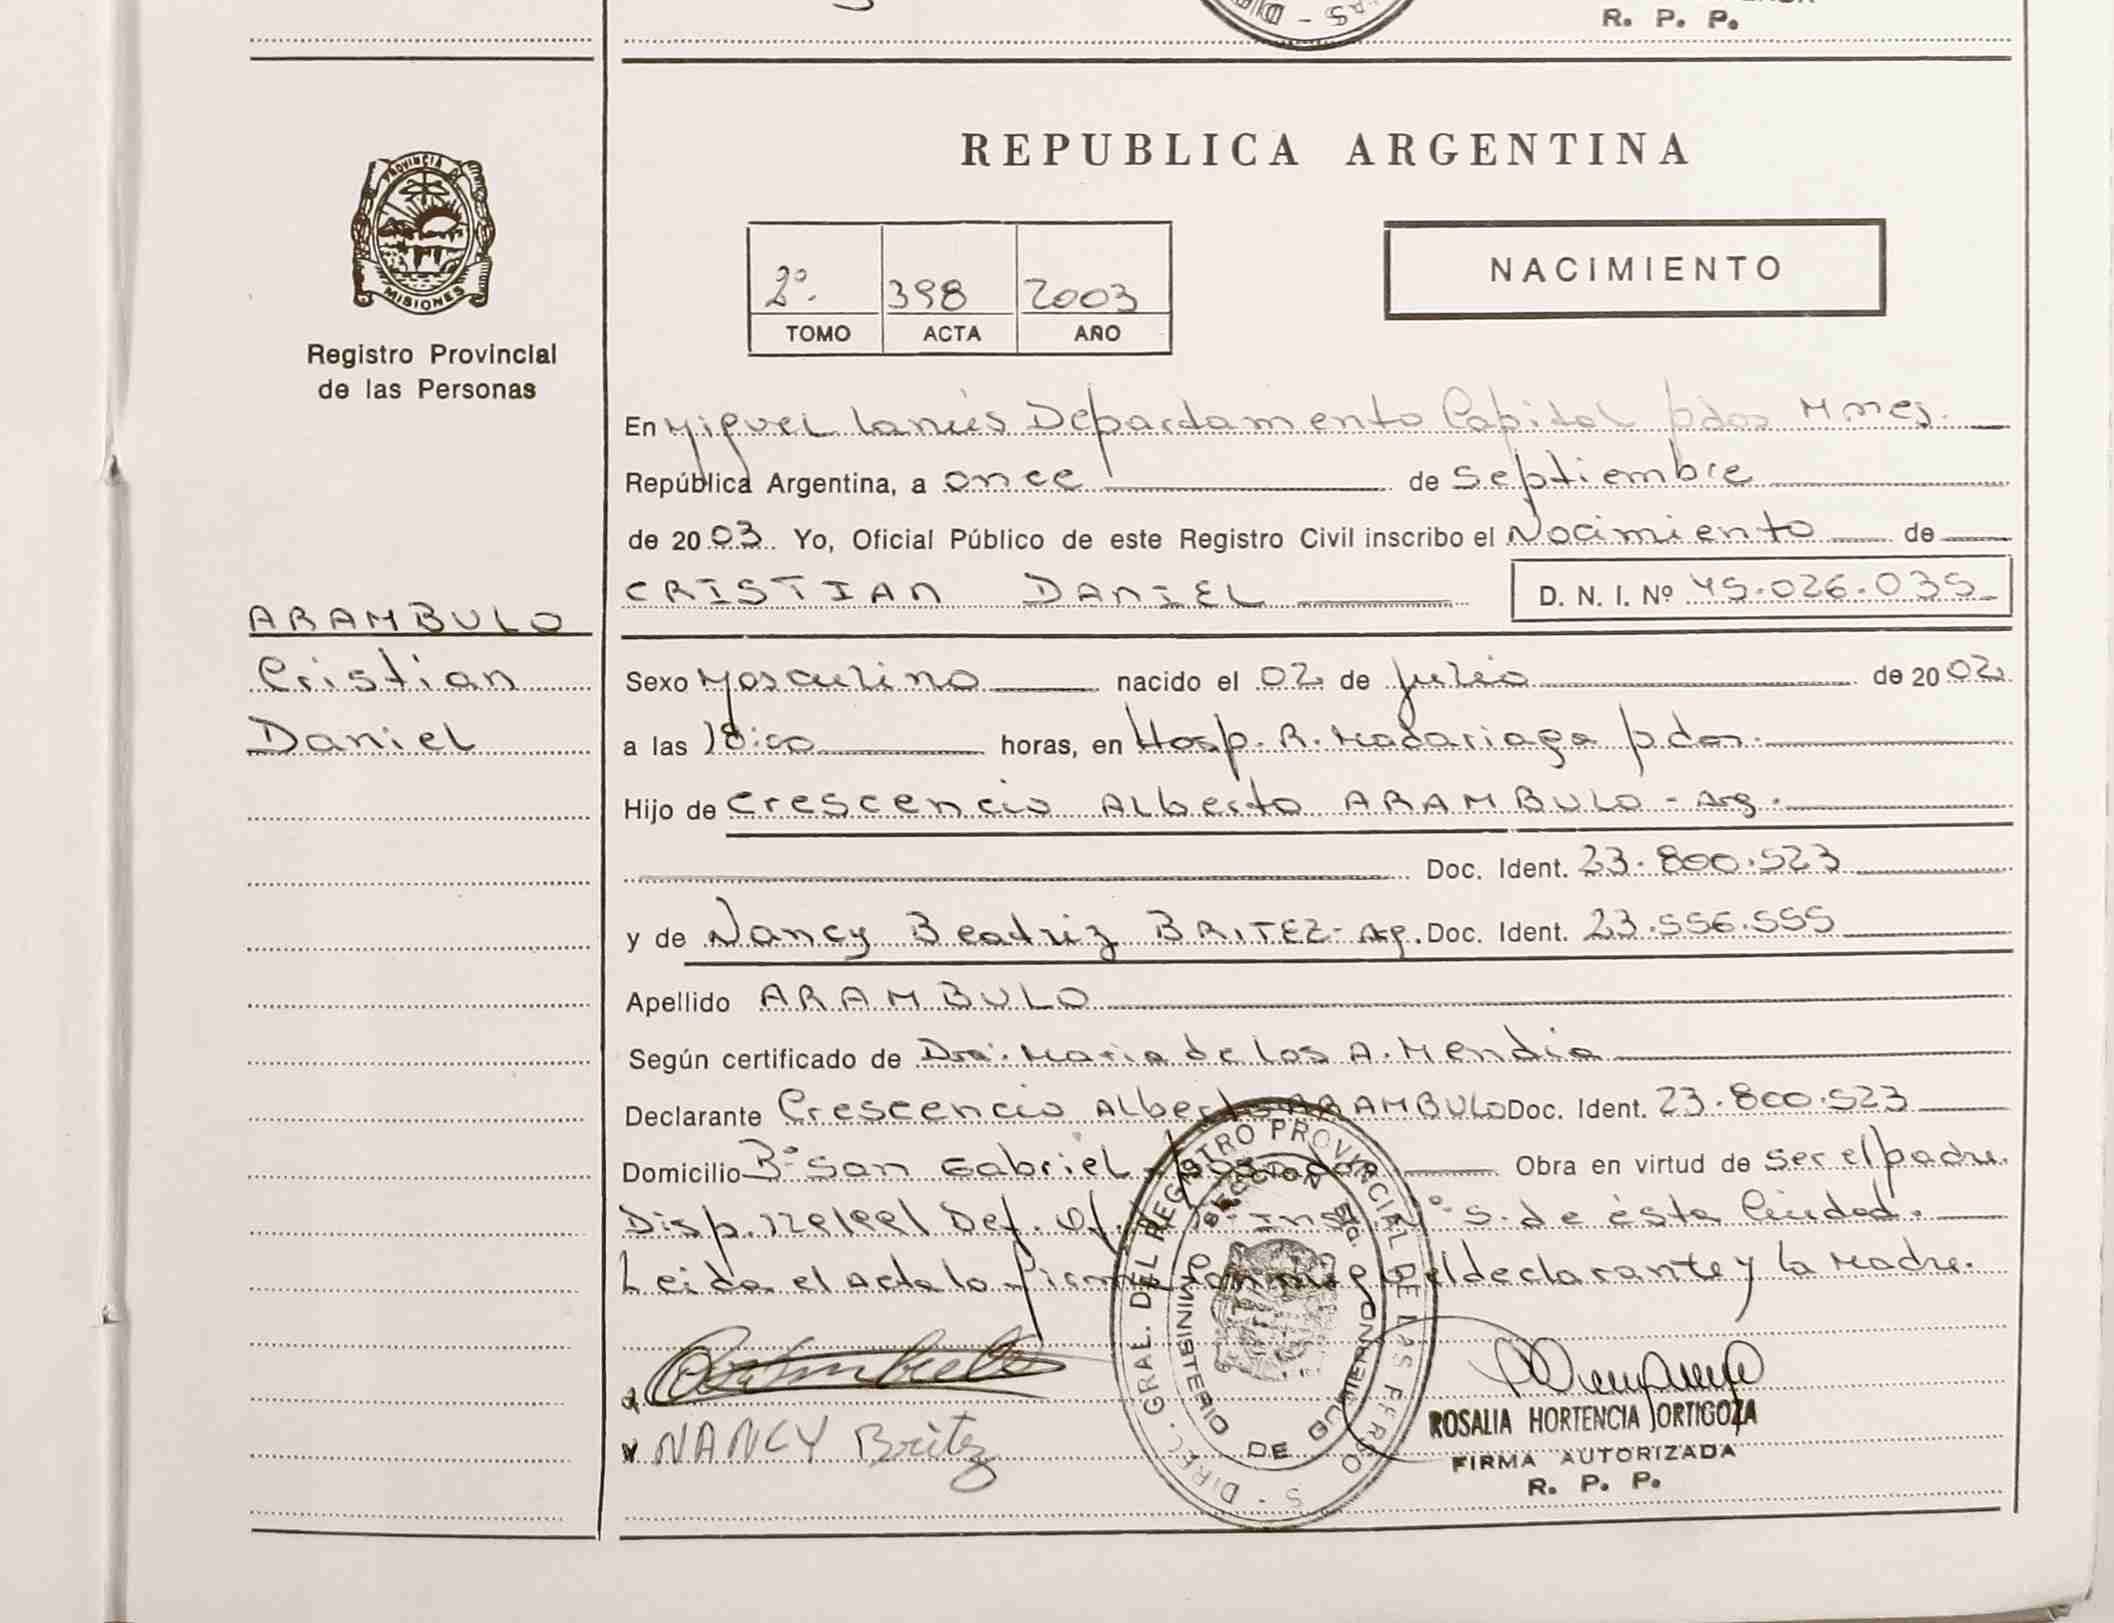 R. P. P.
PROVINCIA DE MISIONES
Registro Provincial
de las Personas
ARAMBULO
Cristian
Daniel
REPUBLICA ARGENTINA
2º. 398 2003
TOMO ACTA AÑO
NACIMIENTO
En Miguel Lanús Departamento Capital pdas Mnes.
República Argentina, a once de Septiembre
de 2003. Yo, Oficial Público de este Registro Civil inscribo el Nacimiento de
CRISTIAN DANIEL D. N. I. Nº 45.026.035
Sexo Masculino nacido el 02 de Julio de 2002
a las 18:00 horas, en Hosp. R. Madariaga pdas.
Hijo de Crescencio Alberto ARAMBULO - Arg.
Doc. Ident. 23.800.523
y de Nancy Beatriz BRITEZ - Arg. Doc. Ident. 23.556.555
Apellido ARAMBULO
Según certificado de Dra. Maria de los A. Mendia
Declarante Crescencio Alberto ARAMBULO Doc. Ident. 23.800.523
Domicilio Bº San Gabriel - Posadas Obra en virtud de ser el padre.
Disp. Def. Of. Inst. Nº 5. de ésta Ciudad.
Leida el acta la firma el declarante y la Madre.
NANCY Britez
DIREC. GRAL. DEL REGISTRO PROVINCIAL DE LAS PERSONAS
SECCION 5ta.
MINISTERIO DE GOBIERNO
ROSALIA HORTENCIA ORTIGOZA
FIRMA AUTORIZADA
R. P. P.